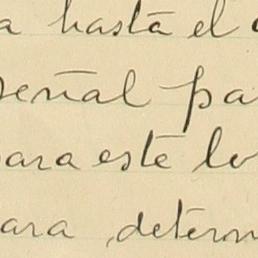 a hasta el
señal pa
para este lo
ara determ